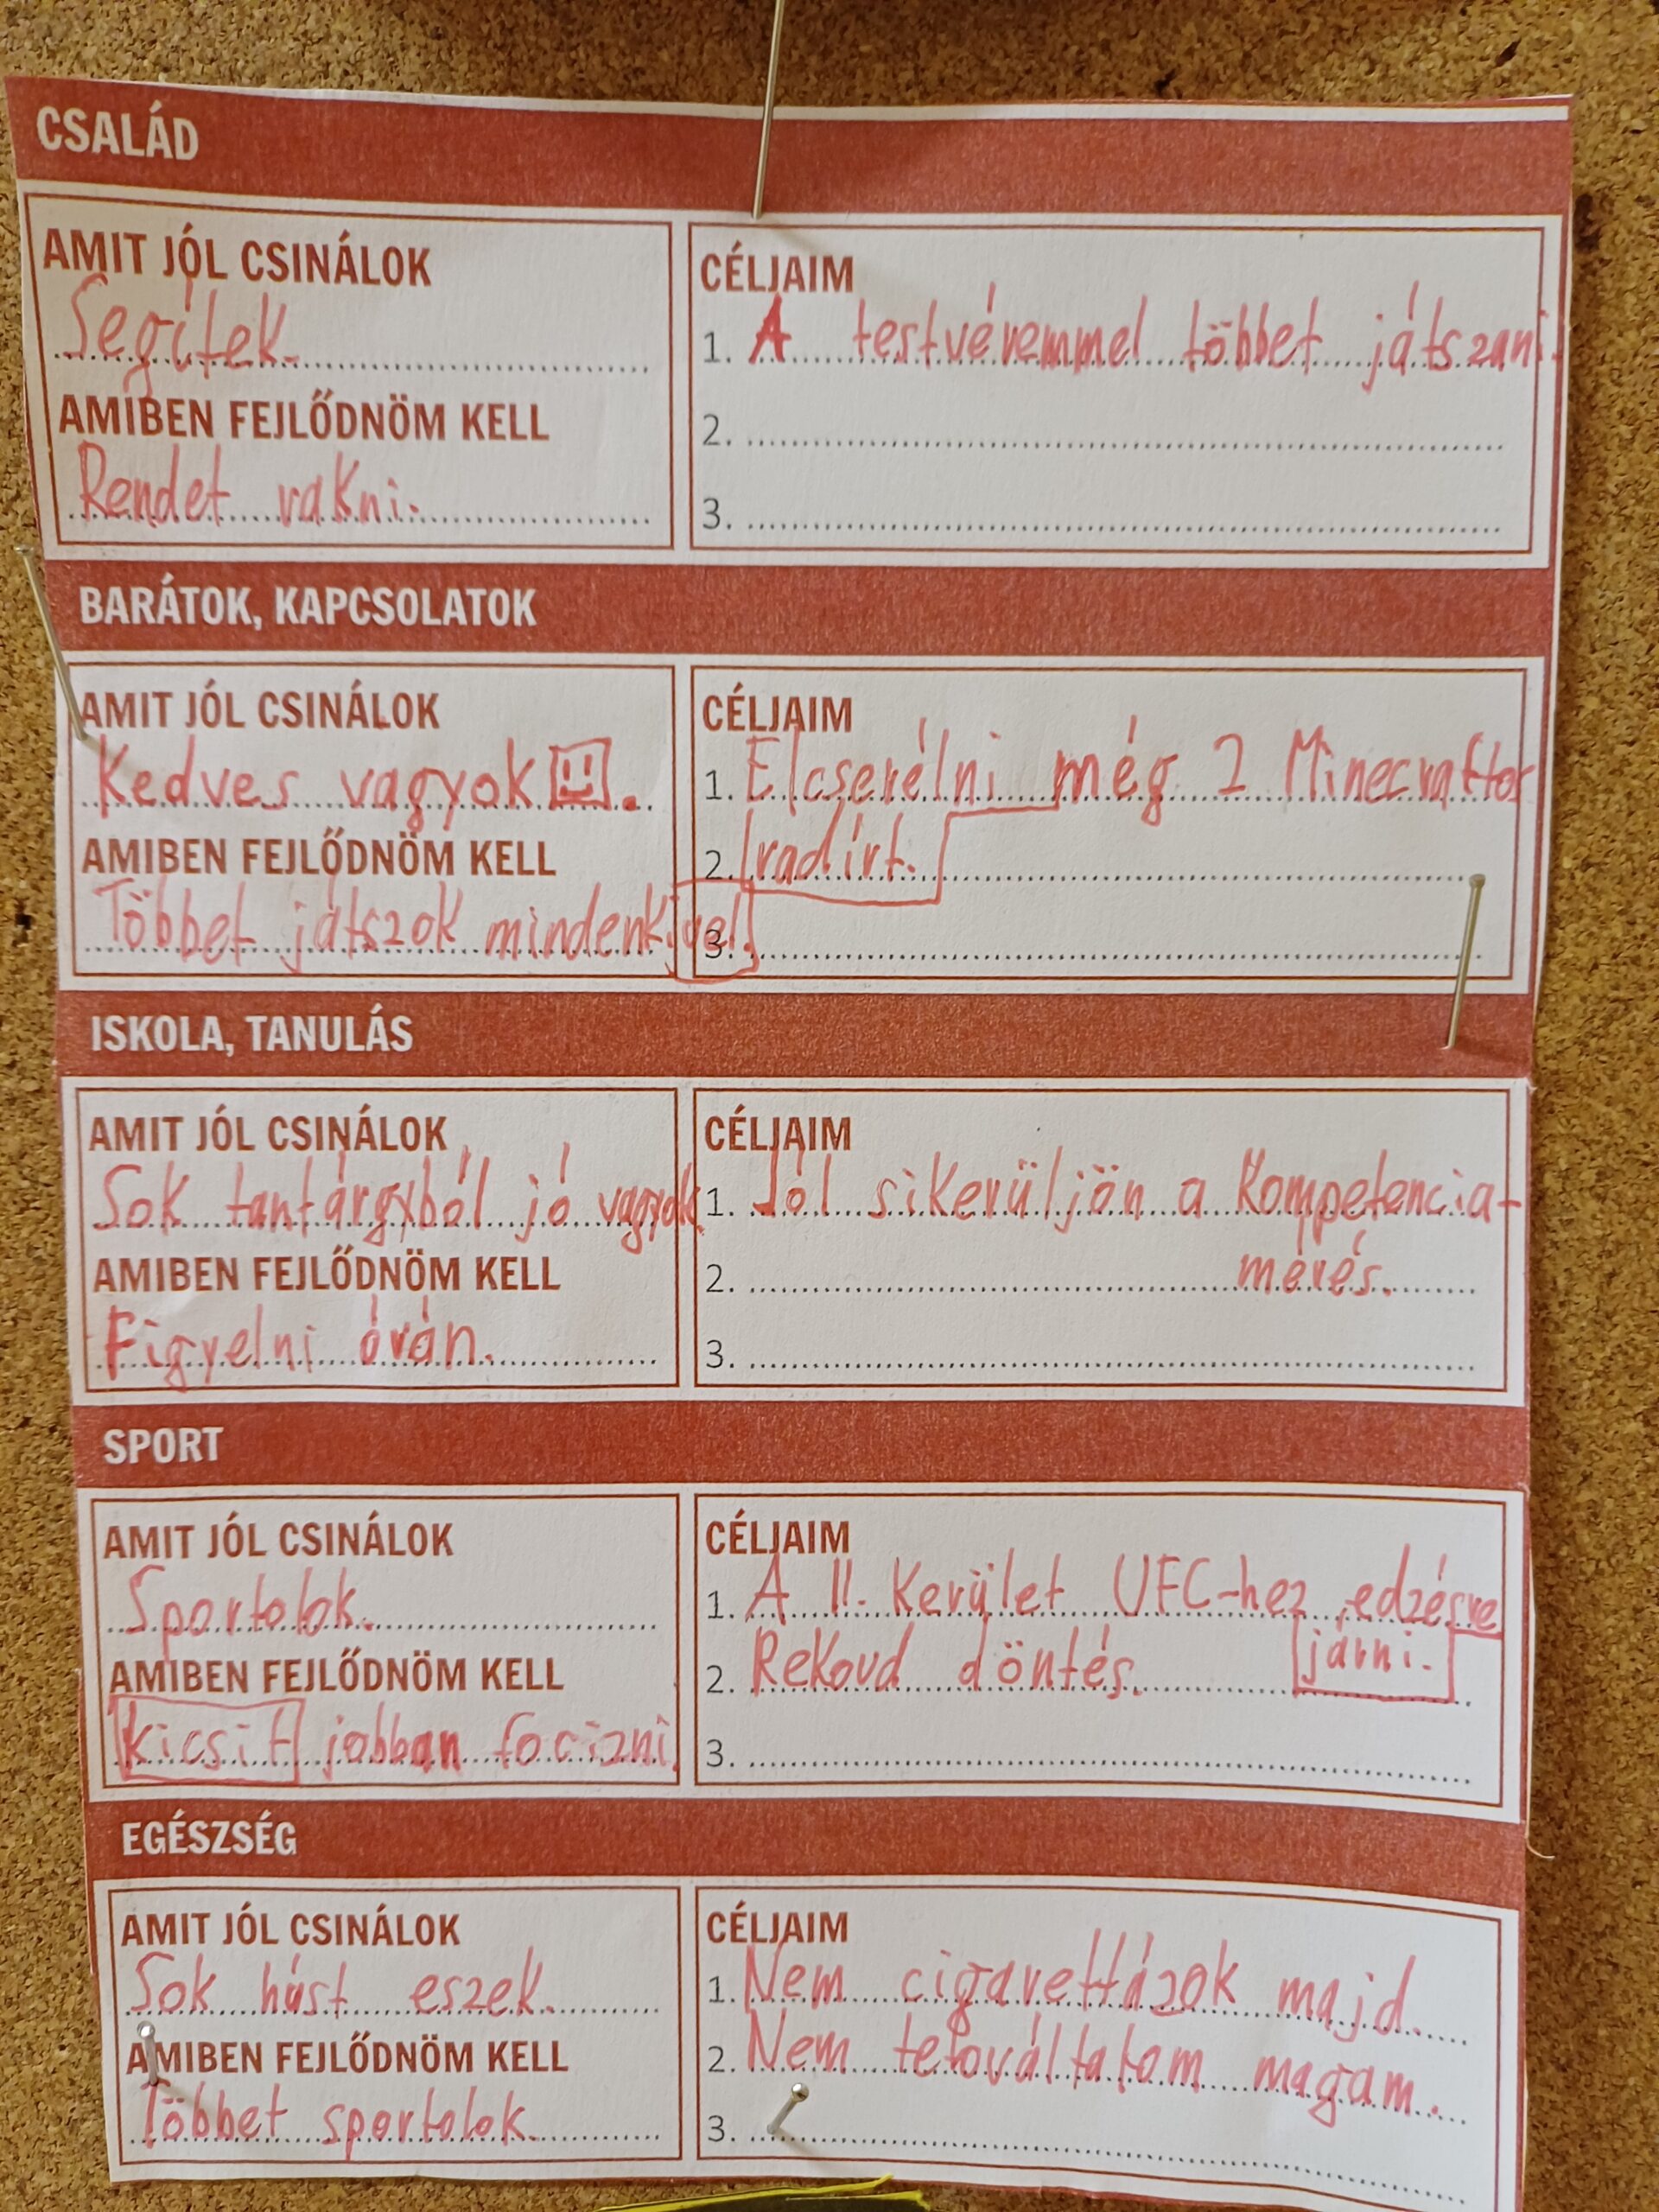 CSALÁD
AMIT JÓL CSINÁLOK
Segítek.
AMIBEN FEJLŐDNÖM KELL
Rendet vakni.
CÉLJAIM
1. A testvéremmel többet játszani.
2.
3.
BARÁTOK, KAPCSOLATOK
AMIT JÓL CSINÁLOK
Kedves vagyok.
AMIBEN FEJLŐDNÖM KELL
Többet játszok mindenkivel.
CÉLJAIM
1. Elcserélni még 2 Minecraftos
2. radírt.
3.
ISKOLA, TANULÁS
AMIT JÓL CSINÁLOK
Sok tantárgyból jó vagyok.
AMIBEN FEJLŐDNÖM KELL
Figyelni órán.
CÉLJAIM
1. Jól sikerüljön a kompetencia-
2. mérés.
3.
SPORT
AMIT JÓL CSINÁLOK
Sportolok.
AMIBEN FEJLŐDNÖM KELL
Kicsit jobban focizni.
CÉLJAIM
1. A II. Kerület UFC-hez edzésre
járni.
2. Rekord döntés.
3.
EGÉSZSÉG
AMIT JÓL CSINÁLOK
Sok húst eszek.
AMIBEN FEJLŐDNÖM KELL
Többet sportolok.
CÉLJAIM
1. Nem cigarettázok majd.
2. Nem tetováltatom magam.
3.